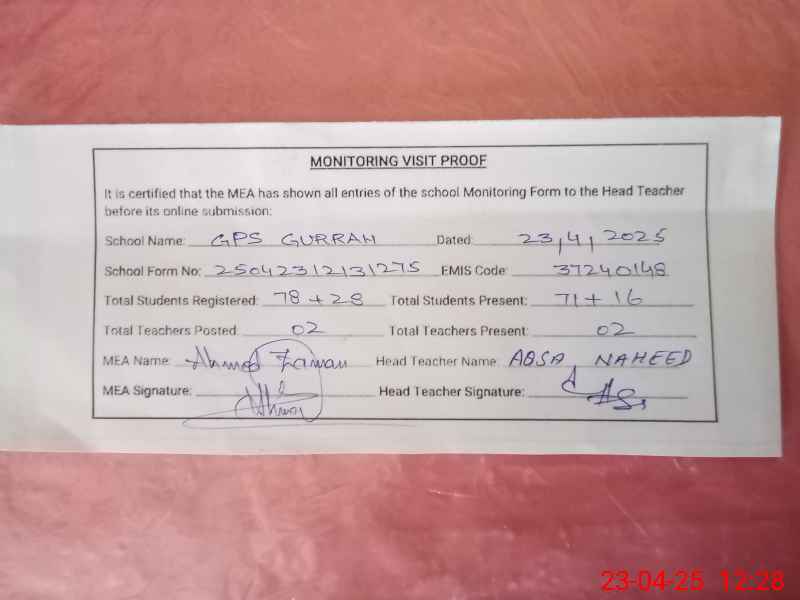 MONITORING VISIT PROOF
It is certified that the MEA has shown all entries of the school Monitoring Form to the Head Teacher
before its online submission:
School Name: GPS GURRAH Dated: 23,4,2025
School Form No: 25042312131275 EMIS Code: 37240148
Total Students Registered: 78+28 Total Students Present: 71+16
Total Teachers Posted: 02 Total Teachers Present: 02
MEA Name: Ahmed Zaman Head Teacher Name: ABSA NAHEED
MEA Signature: Head Teacher Signature:
23-04-25 12:28